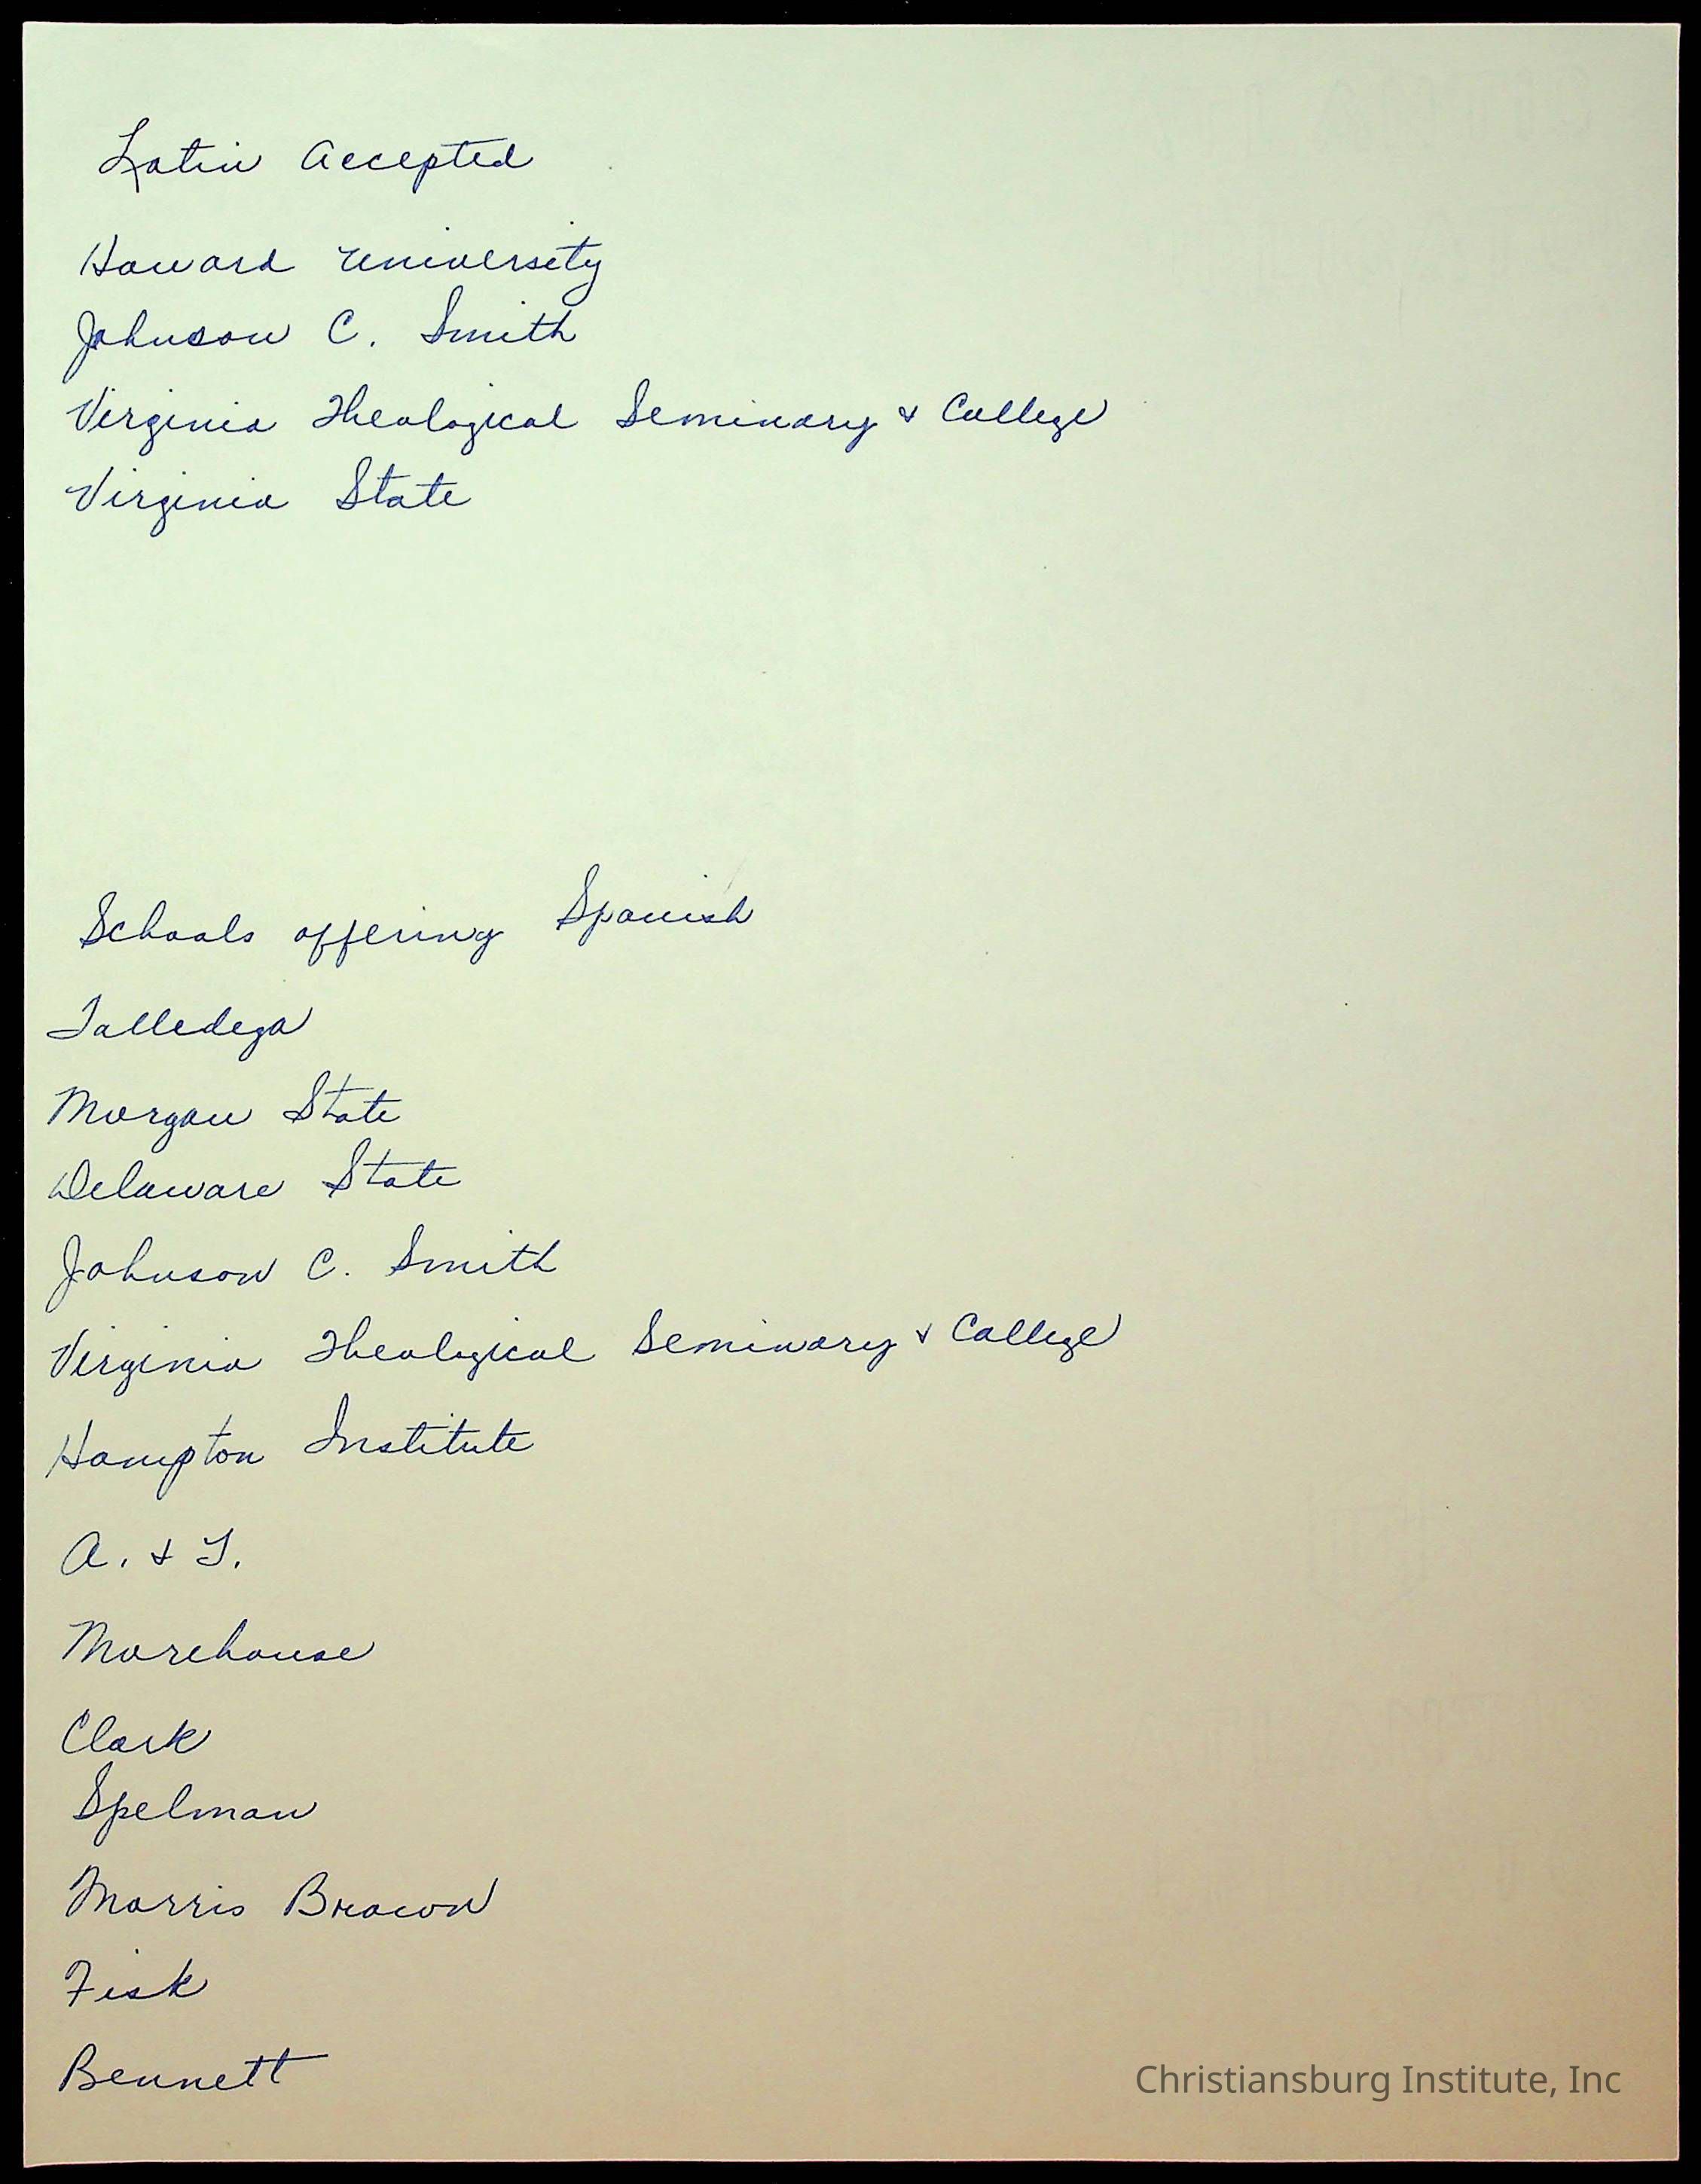 Latin Accepted
Howard University
Johnson C. Smith
Virginia Theological Seminary & College
Virginia State
Schools offering Spanish
Talledega
Morgan State
Delaware State
Johnson C. Smith
Virginia Theological Seminary & College
Hampton Institute
A. & T.
Morehouse
Clark
Spelman
Morris Brown
Fisk
Bennett
Christiansburg Institute, Inc